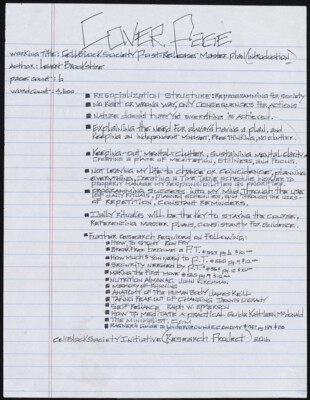 Cover Page
working title: CellBlockSociety Post-Release Master plan (introduction)
author: Levert Brookshire
page count: 6
word count: 4,200
■ Resocialization Structure: Reprogramming for society
■ No right or wrong way, only consequences for actions
■ Nature doesn't hurry yet everything is achieved.
■ Explaining the need for always having a plan, and
keeping an independent mindset, free thinking, no clutter.
■ Keeping out mental clutter, sustaining mental clarity
creating a place of meditation, stillness, and focus.
■ Not leaving my life to chance or coincidence, planning
everything, creating a time table schedule in order to
properly manage my responsibilities and priorities.
■ Reprogramming success into my mind through the use
of daily rituals, planned schedules, and through the laws
of repetition, constant reminders.
■ Daily Rituals will be the key to staying the course,
referencing master plans, constantly for guidance.
■ Further research required as following:
■ How to study Ron Fry
■ Break free become a P.T.
■ How much $ you need to P.T.
■ Security needed by P.T.
■ Making the first move
■ Nutrition Almanac John Kirschman
■ Memory of Running
■ Anatomy of the human body James Kell
■ Taking fear out of changing Dennis O'Grady
■ Self Reliance Ralph W. Emerson
■ How to meditate a practical guide Kathleen McDonald
■ The minimalist.com
CellBlockSociety Initiative (Research Project) 2014